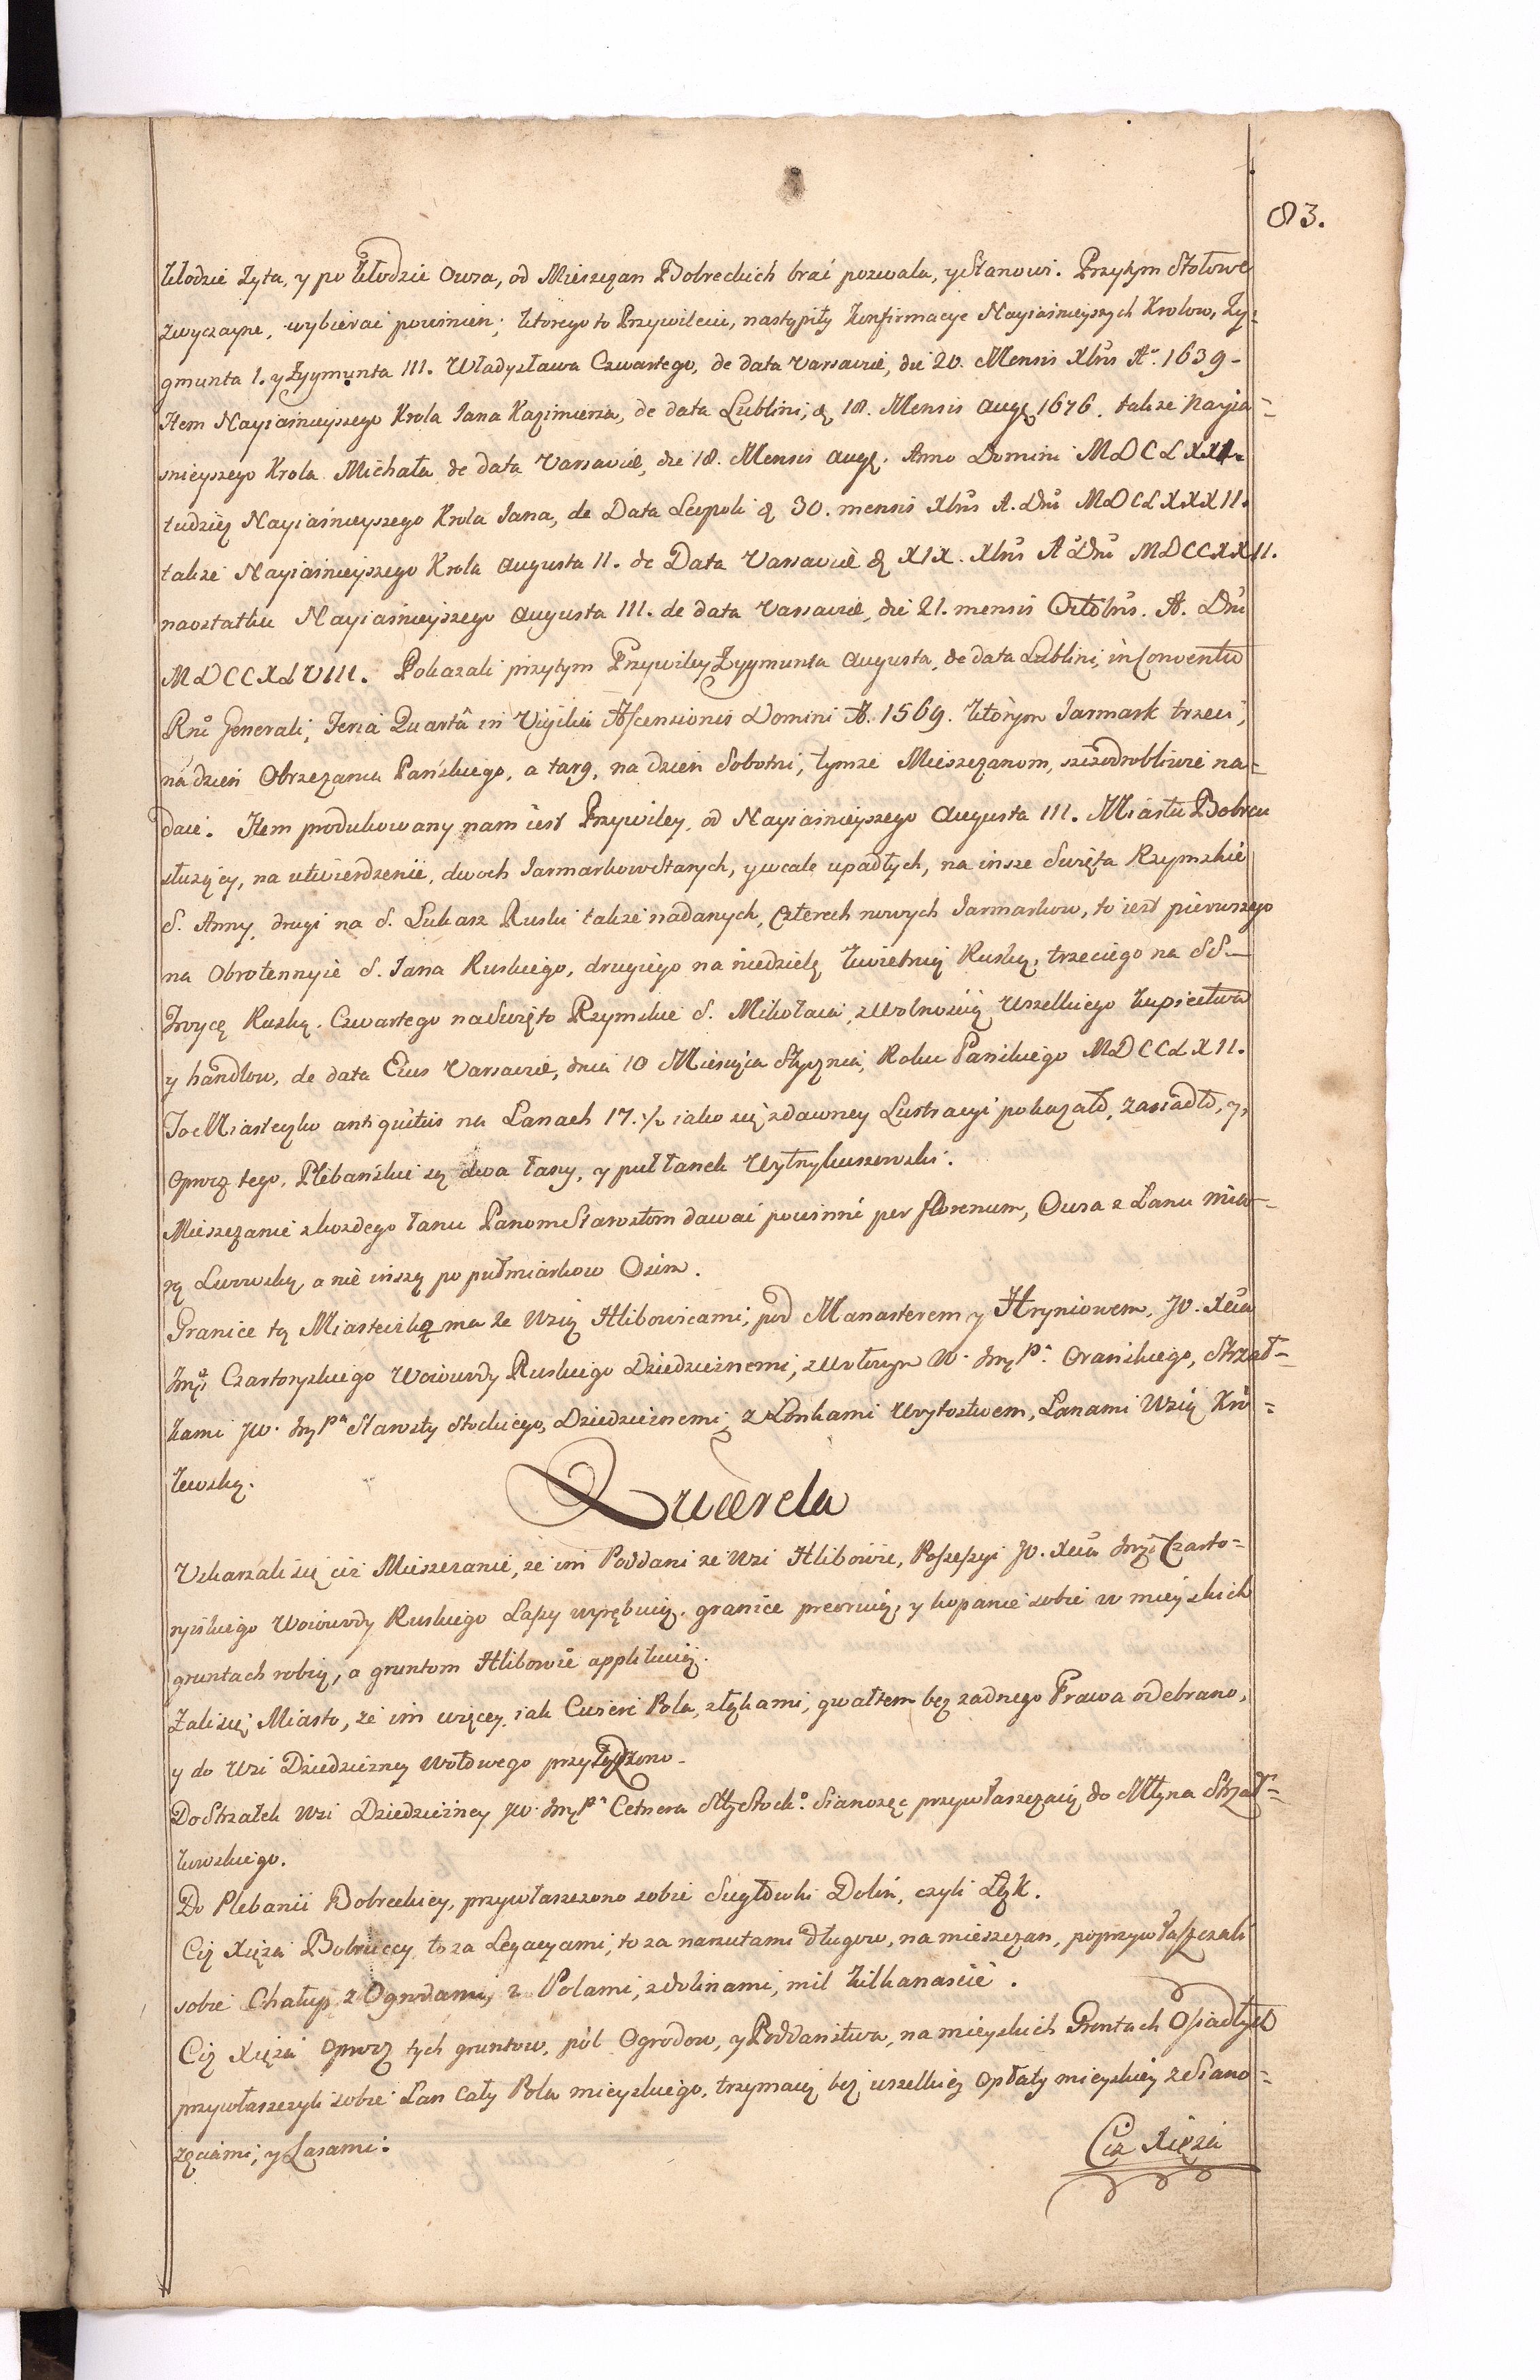 83.
Kłodzie Żyta, y po Kłodzie Owsa, od Mieszczan Bobreckich brać pozwala, y Stanowi. Przytym Stołowe
zwyczayne, wybierać powinien; ktorego to Przywileiu, nastąpiły Konfirmacye Nayiaśnieyszych Krolow, Zy=
gmunta 1. y Zygmunta 111. Władysława Czwartego, de data Varsaviæ, die 20. Mensis Xbris Aº. 1639-
Item Nayiaśnieyszego Krola Jana Kazimierza, de data Lublini, d 18. Mensis Augę 1676. także Nayia=
śnieyszego Krola Michała de data Varsaviæ, die 18. Mensis Augę. Anno Domini MDCLXX1.
tudzież Nayiaśnieyszego Krola Jana, de Data Leopoli d 30. mensis Xbris A. Dni MDCLXXX11.
także Nayiaśnieyszego Krola Augusta 11. de Data Varsaviæ d X1X. Xbris Aº Dni MDCCXX11.
naostatku Nayiaśnieyszego Augusta 111. de data Varsaviæ, die 21. mensis Octobris. A. Dni
MDCCXLV111. Pokazali przytym Przywiley Zygmunta Augusta, de data Lublini, in Conventu
Rni Generali, Feria Quartâ in Vigilia Ascensionis Domini A. 1569. ktorym Jarmark trzeci,
na dzień Obrzezania Pańskiego, a targ, na dzień Sobotni, tymże Mieszczanom, szczodrobliwie na=
daie. Item produkowany nam iest Przywiley, od Nayiaśnieyszego Augusta 111. Miastu Bobrcu
służący, na utwierdzenie, dwoch Jarmarkow Starych, y wcale upadłych, na insze Swięta Rzymskie
S. Anny, drugi na S. Łukasz Ruski także nadanych, Czterech nowych Jarmarkow, to iest pierwszego
na Obrotennyie S. Jana Ruskiego, drugiego na niedzielę Kwietnią Ruską, trzeciego na SS.
Troycę Ruską. Czwartego na Swięto Rzymskie S. Mikołaia, z Wolnością Wszelkiego kupiectwa
y handlow, de data Eius Varsaviæ, dnia 10 Miesiąca Stycznia, Roku Pańskiego MDCCLX11.
To Miasteczko antiquitus na Łanach 17. ½ iako się z dawney Lustracyi pokazało, zasiadło, y,
oprocz tego, Plebańskie są dwa łany, y puł łanek Wytrykuszowski.
Mieszczanie z każdego łanu Panom Starostom dawać powinni per florenum, Owsa z Łanu mia=
rą Lwowską a nie inszą po pułmiarkow Osim.
Granice tę Miasteczko ma ze Wsią Hlibowicami, pod Manasterem y Hryniowem, JO. Xcia
Jmci Czartoryskiego Woiewody Ruskiego Dziedzicznemi, z Wołowym W. Jmę Pª. Orańskiego, Strzał=
kami JW. Jmę Pª Starosty Stockiego, Dziedzicznemi, z Łonkami Woytostwem, Łanami Wsią Kró=
lewską.
Querela
Uskarżali się ciż Mieszczanie, że im Poddani ze Wsi Hlibowic, Possessyi JO. Xcia Jmci Czarto=
ryiskiego Woiewody Ruskiego Lasy wyrębuią, granice preoruią, y kopanie sobie w mieyskich
gruntach robią, a gruntom Hlibowic applikuią.
Żali się Miasto, że im więcey iak Cwierć Pola, z łąkami, gwałtem bez zadnego Prawa odebrano,
y do Wsi Dziedziczney Wołowego przyłączono.
Do Strzałek Wsi Dziedziczney JW. Jmę Pª Cetnera Stty Stockº. Sianożęc przywłaszczaią do Młyna Strzał=
kowskiego.
Do Plebanii Bobreckiey, przywłaszczono sobie Sugłowki Dolin, czyli Łąk.
Ciż Xięża Bobreccy, to za Legacyami, to za narzutami długow, na mieszczan, poprzywłaszczali
sobie Chałup z Ogrodami, z Polami, z dolinami, mil kilkanascie.
Ciż Xięża oprocz tych gruntow, pól Ogrodow, y Poddaństwa, na mieyskich Gruntach Osiadłych
przywłaszczyli sobie Łan Cały Pola mieyskiego, trzymaią bez wszelkiey Opłaty mieyskiey z Siano=
żęciami, y Lasami.
Ciż Xięża